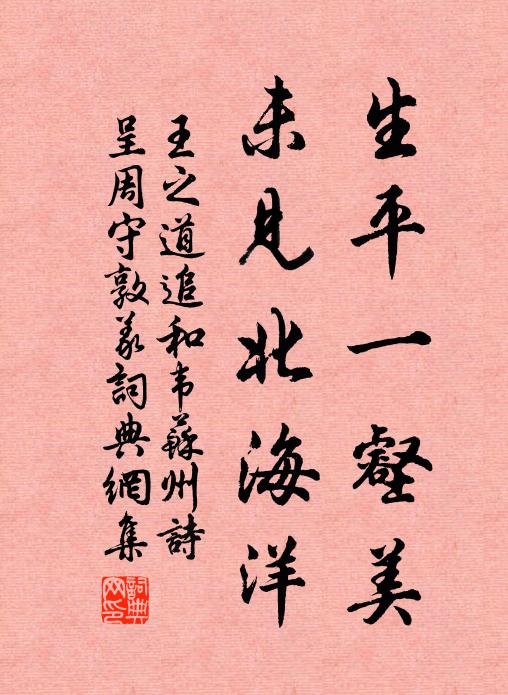 生平一壑美
未見北海洋
王之道追和韦蘇州詩
呈周守敦義詞典網集
詞典